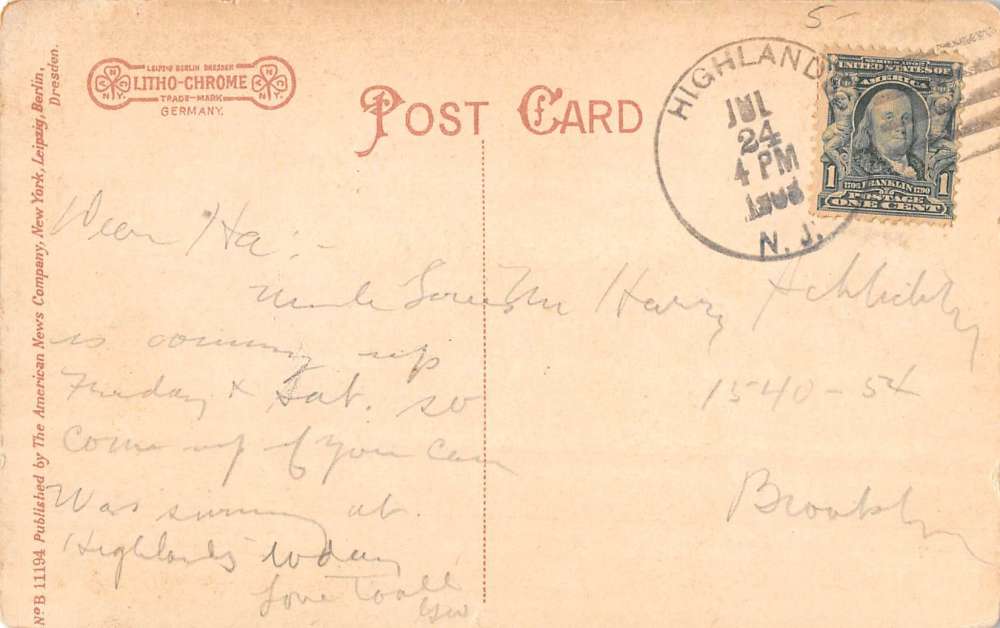 5-
LEIPZIG BERLIN DRESDEN
LITHO-CHROME
TRADE-MARK
GERMANY.
N.Y.
N.Y.
POST CARD
HIGHLANDS
JUL
24
4 PM
N. J.
SERIES 1902
UNITED STATES OF
AMERICA
1 1
1706 FRANKLIN 1790
POSTAGE
ONE CENT
No B 11194 Published by The American News Company, New York, Leipzig, Berlin,
Dresden.
Dear Ha:-
Uncle
is coming up
Friday & Sat. so
come up if you can
Was swimming at
Highlands today
Love to all
Mr Harry
1540-54
Brooklyn